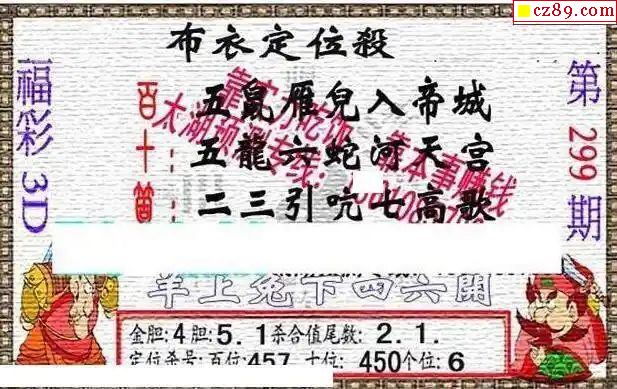 cz89.com
布衣定位殺
福彩3D
第299期
百：五鼠雁兒入帝城
十：五龍六蛇河天宫
個：二三引吭七高歌
靠实力吃饭 靠本事赚钱
太湖预测专线：
羊上兔下四六開
金胆:4胆:5.1杀合值尾数:2.1.
定位杀号:百位:457 十位:450个位:6